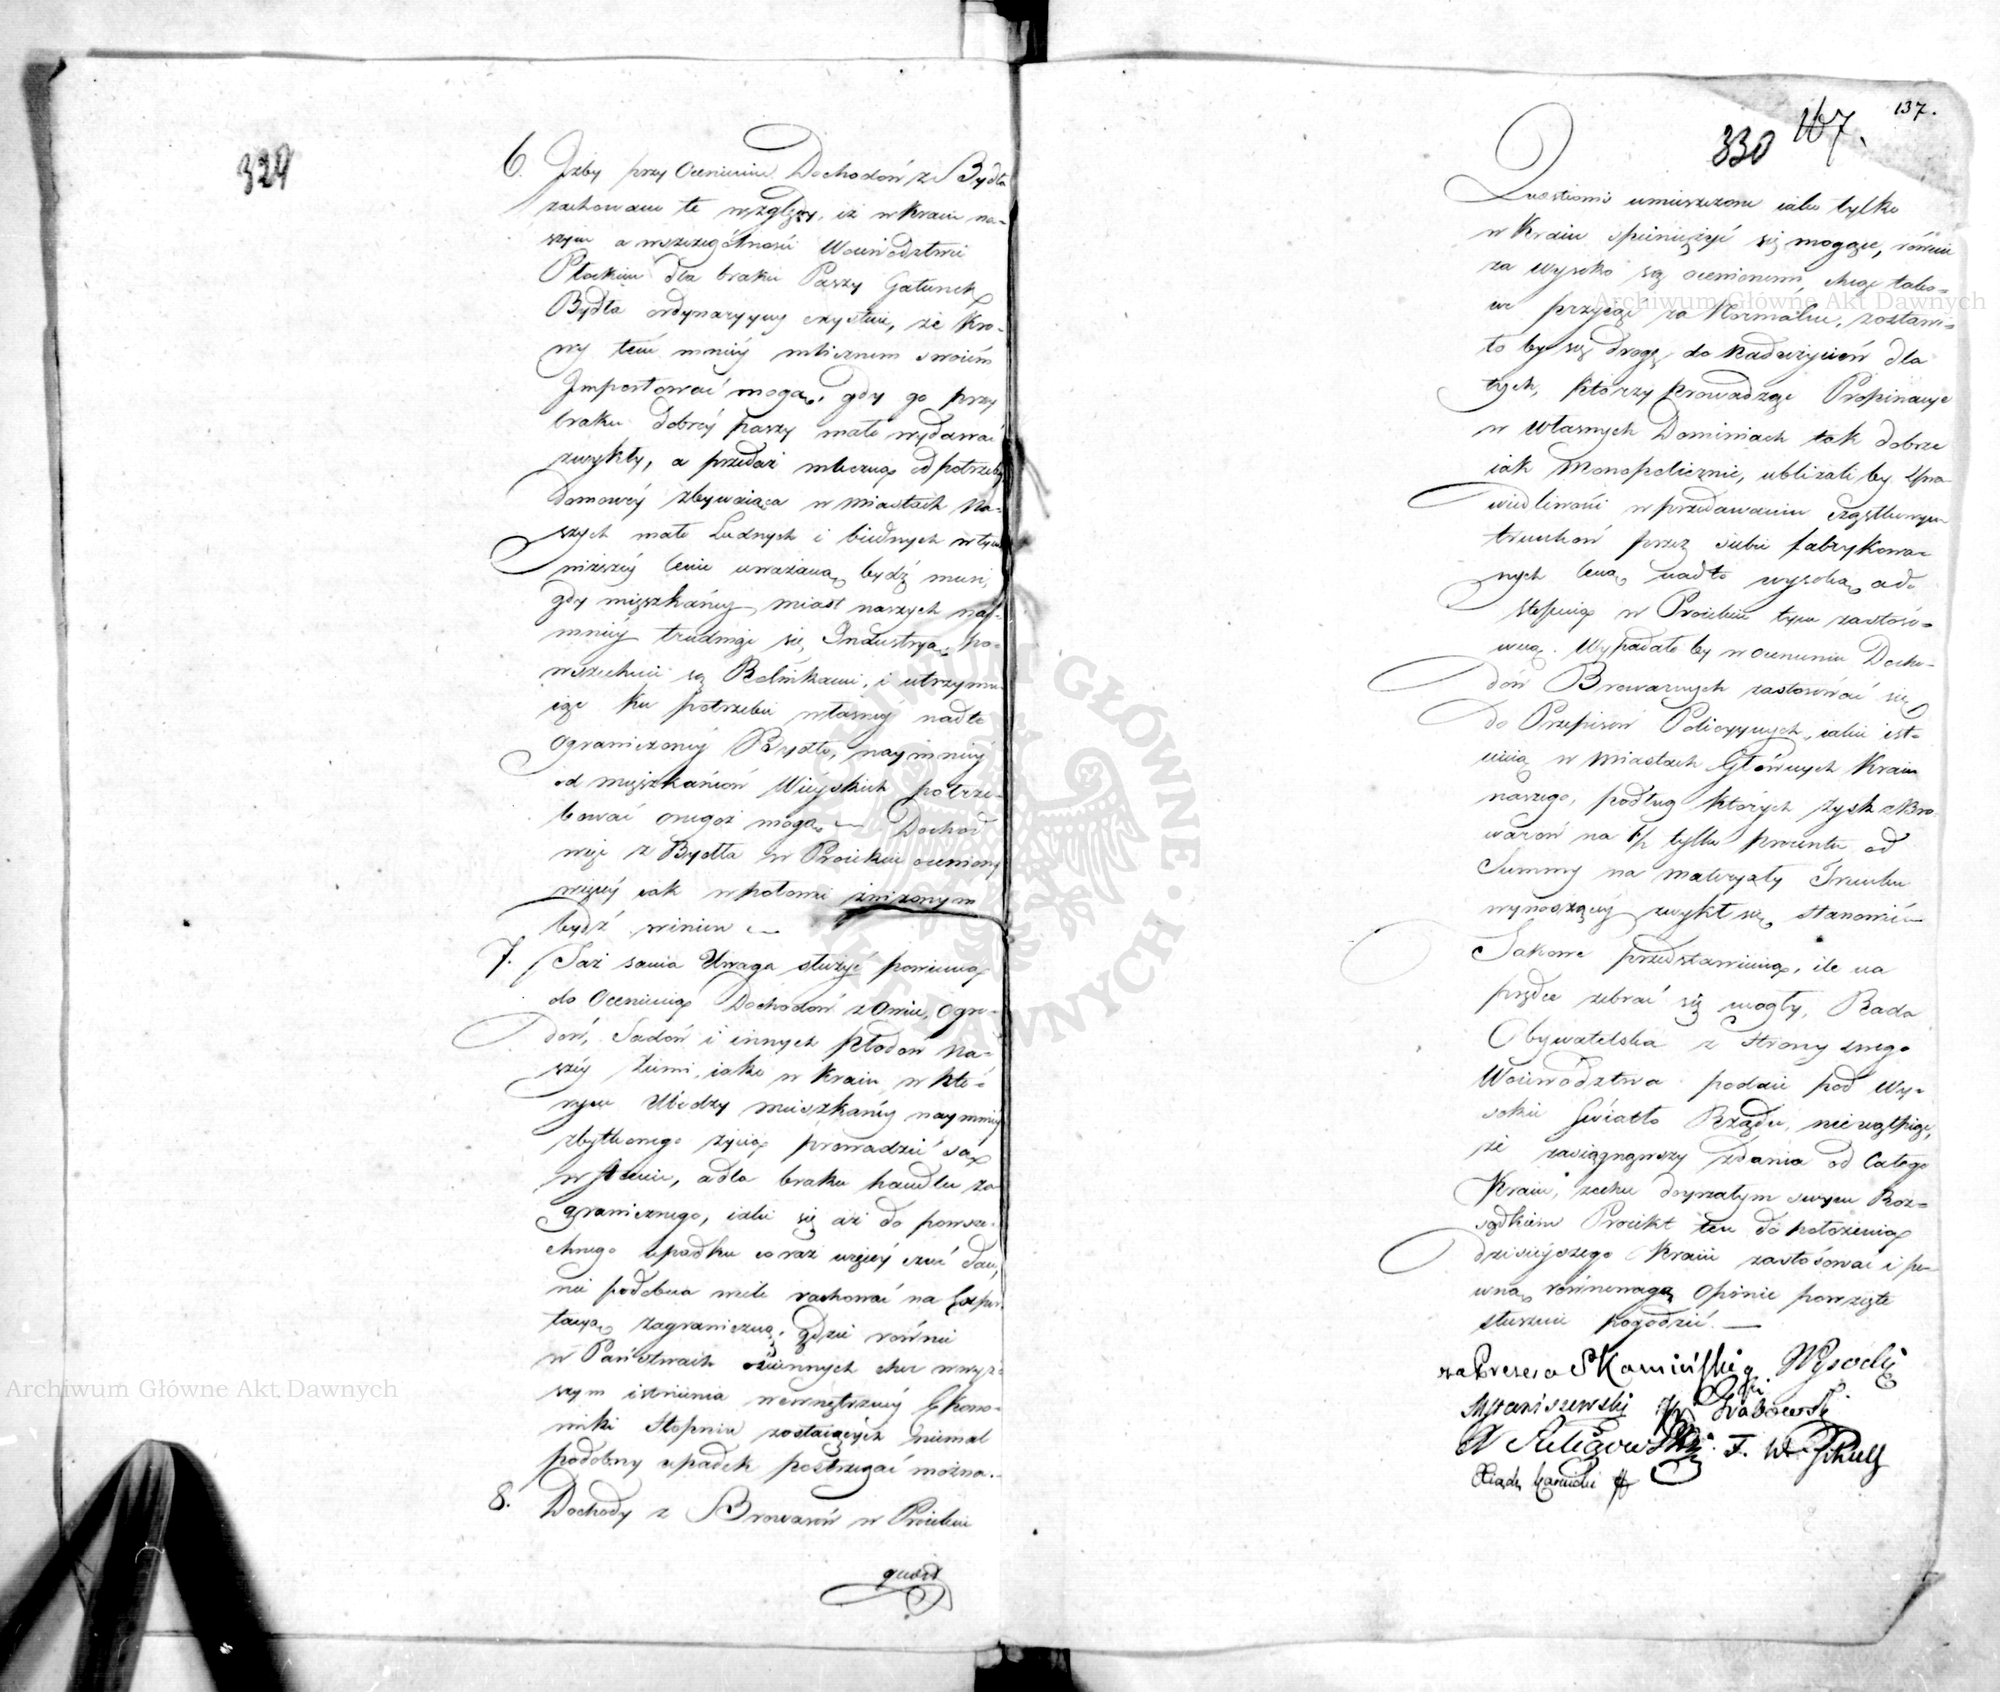 329
6. Jżby przy Ocenieniu Dochodów z Bydła
zachowane te względy, iż w Kraiu na-
szym a wszczególności Woiewództwie
Płockim dla braku Paszy Gatunek
Bydła ordynaryyny exystuie, że Kro-
wy tem mniéy mlicznem swoiém
Jmportować mogą, gdy go przy
braku dobréy paszy mało wydawać
zwykły, a przedaż mleczną od potrzeby
domowéy zbywaiąca w miastach Na-
szych mało Ludnych i biednych w tym
niższéy Cenie uważaną bydź musi,
gdy mięszkańcy miast naszych nay-
mniéy trudniąc się Jndustryą, po-
wszechnie są Rolnikami, i utrzymu-
iąc ku potrzebie własnéy nadto
Ograniczonéy Bydło, naymniéy
od mięszkańców Wieyskich potrze-
bować onegoż mogą — Dochod
więc z Bydła w Proiekcie oceniony
więcéy iak w połowie zniżonym
bydź winien —
7. Taż sama Uwaga służyć powinna
do Ocenienia Dochodów z Owiec, Ogro-
dów, Sadów i innych płodów Na-
széy Ziemi, iako w Kraiu w któ-
rym Ubodzy mieszkańcy naymniéy
zbytkownego życia prowadzić są
w stanie, a dla braku handlu za-
granicznego, iakie się aż do powsze-
chnego upadku coraz więcéy czuć daie,
nie podobna wiele rachować na Expor-
tacyą zagraniczną, gdzie równie
w Państwach ościennych choć w wyż-
szym istnienia wewnętrznéy Ekono-
miki stopniu zostaiących niemal
podobny upadek postrzegać można.-
8. Dochody z Browarów w Proiekcie
137.
330 167.
w Kraiu spieniężyć się mogące, równie
za wysoko są ocenionemi, chcąc tako-
we przyiąć za Normalne, zostawi-
ło by się drogę do Nadużyciów dla
tych, którzy prowadząc Propinacye
w własnych Dominiach tak dobrze
iak Monopolicznie, ubliżali by Spra-
wiedliwości w przedawaniu cząstkowym
trunków przez siebie fabrykowa-
nych Ceną nadto wysoką ad
w Proiekcie tym zastoso-
waną. Wypadało by w ocenieniu Docho-
dów Browarnych zastosować się
do Przepisów Policyynych, iakie ist-
nieią w Miastach Głównych Kraiu
naszego, podług których Zysk z Bro-
warów na 6/ tylko procentu od
Summy na materyały Trunku
wynoszącéy zwykł się stanowić—
Takowe przedstawienia, ile na
prędce zebrać się mogły, Rada
Obywatelska z strony swego
Woiewództwa podaie pod Wy-
sokie Światło Rządu, nie wątpiąc,
że zaciągnąwszy zdania od Całego
Kraiu, zechce doyrzałym swym Roz-
sądkiem Proiekt ten do położenia
dzisieyszego Kraiu zastosować i pe-
wną równowagą Opinie powzięte
słusznie pogodzić. —
za Prezesa S Kamiński